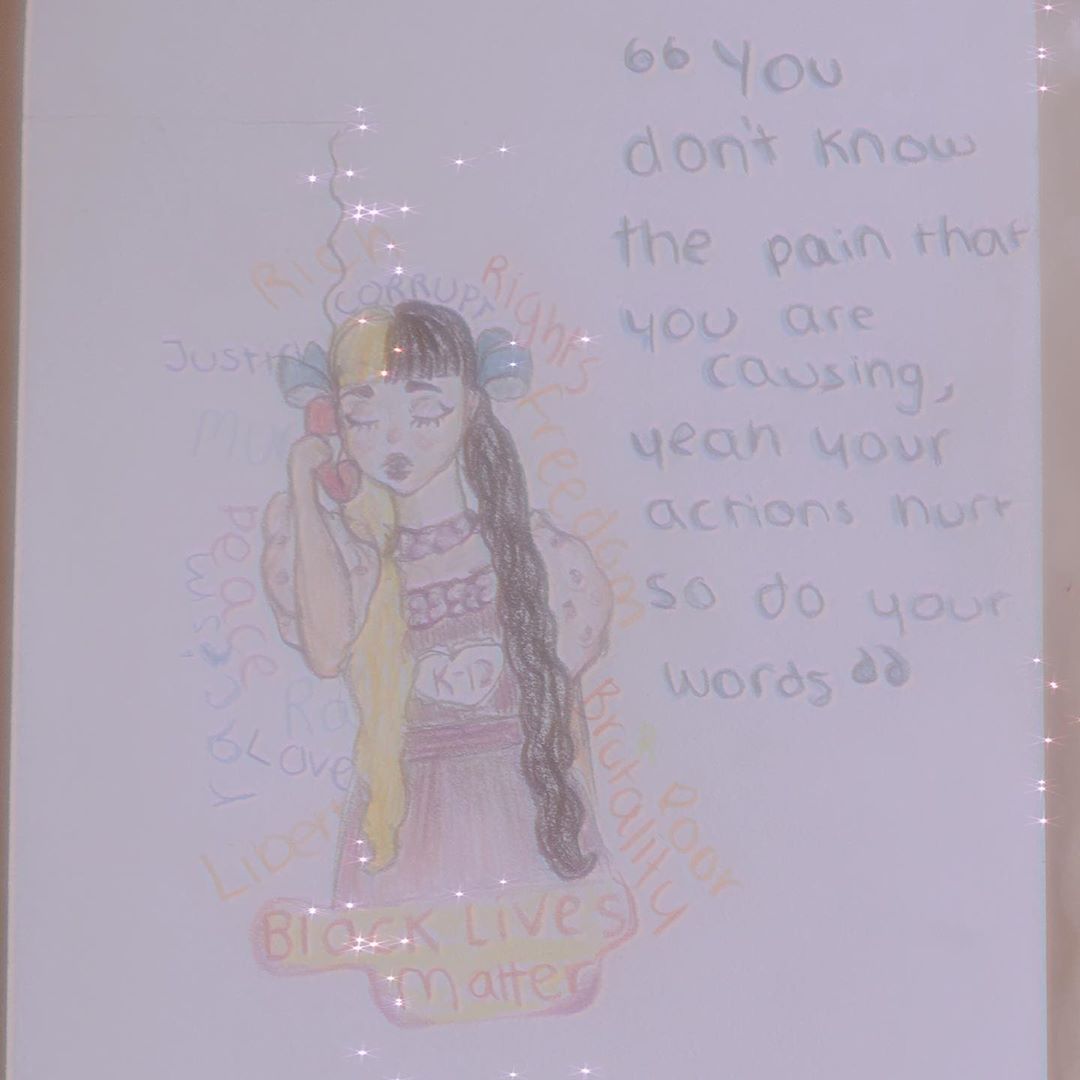 “ You
don't know
the pain that
you are
causing,
yeah your
actions hurt
so do your
words ”
Rich
CORRUPT
Rights
Freedom
Peace
Love
K-12
Brutality
Poor
Black Lives
Matter